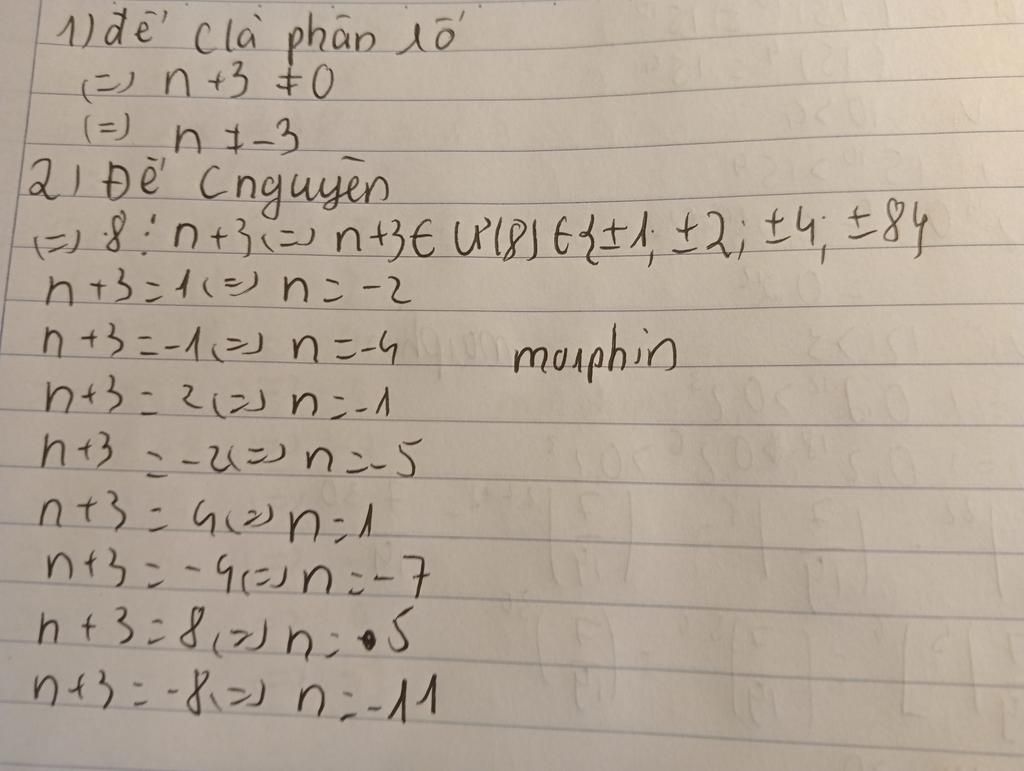 1) để C là phân số
(=) n+3 ≠0
(=) n ≠-3
2) Để C nguyên
(=) 8 ⋮ n+3 (=) n+3 ∈ Ư(8) ∈ {±1; ±2; ±4; ±8}
n+3 = 1 (=) n = -2
n+3 = -1 (=) n = -4 marphin
n+3 = 2 (=) n = -1
n+3 = -2 (=) n = -5
n+3 = 4 (=) n = 1
n+3 = -4 (=) n = -7
n+3 = 8 (=) n = 5
n+3 = -8 (=) n = -11